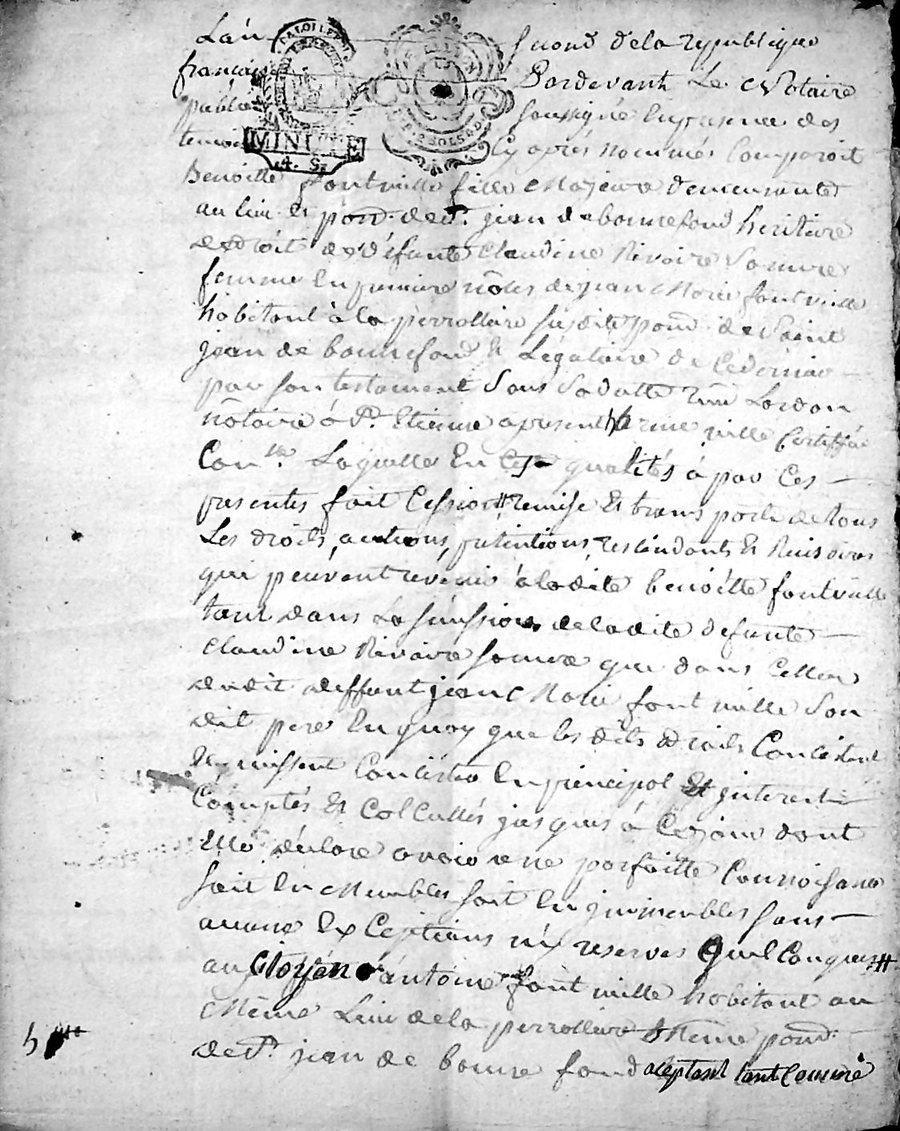 L'an second de la republique
française Pardevant Le Notaire
public soussigné En presence des
temoins Cy après nommés Comparoit
Benoitte fontvielle fille Majeure demeurante
au lieu et de St. jean de bonnefond heritiere
de droit de defunte Claudine Rivoire Sa mere
femme En premiere nôces de jean Marie fontvielle
habitant à la perrotiere susdite de Saint
jean de bonnefond et Légataire de Ce dernier
par son testament Sous Sa datte Lordon
nôtaire à St. Etienne
Laquelle En Ces qualités à par Ces
presentes fait Cession remise et transporte de tous
Les droits, actions, pretentions, rescindants et Rescisoires
qui peuvent revenir à ladite benoitte fontvielle
tant dans La sucession de ladite defunte
Claudine Rivoire sa mere que dans Celle
dudit deffunt jean Marie fontvielle Son
dit pere En quoy que les dits droits Concistent
et puissent Concister En principal et interest
Comptés et Calcullés jusques à Ce jour dont
Elle déclare avoir une parfaitte Connoissance
soit En Meubles soit En immeubles sans
aucune Exceptions ny reserves quelConques #
au Citoyen antoine fontvielle habitant au
Même Lieu de la perrotiere Même
de St. jean de bonnefond aceptant